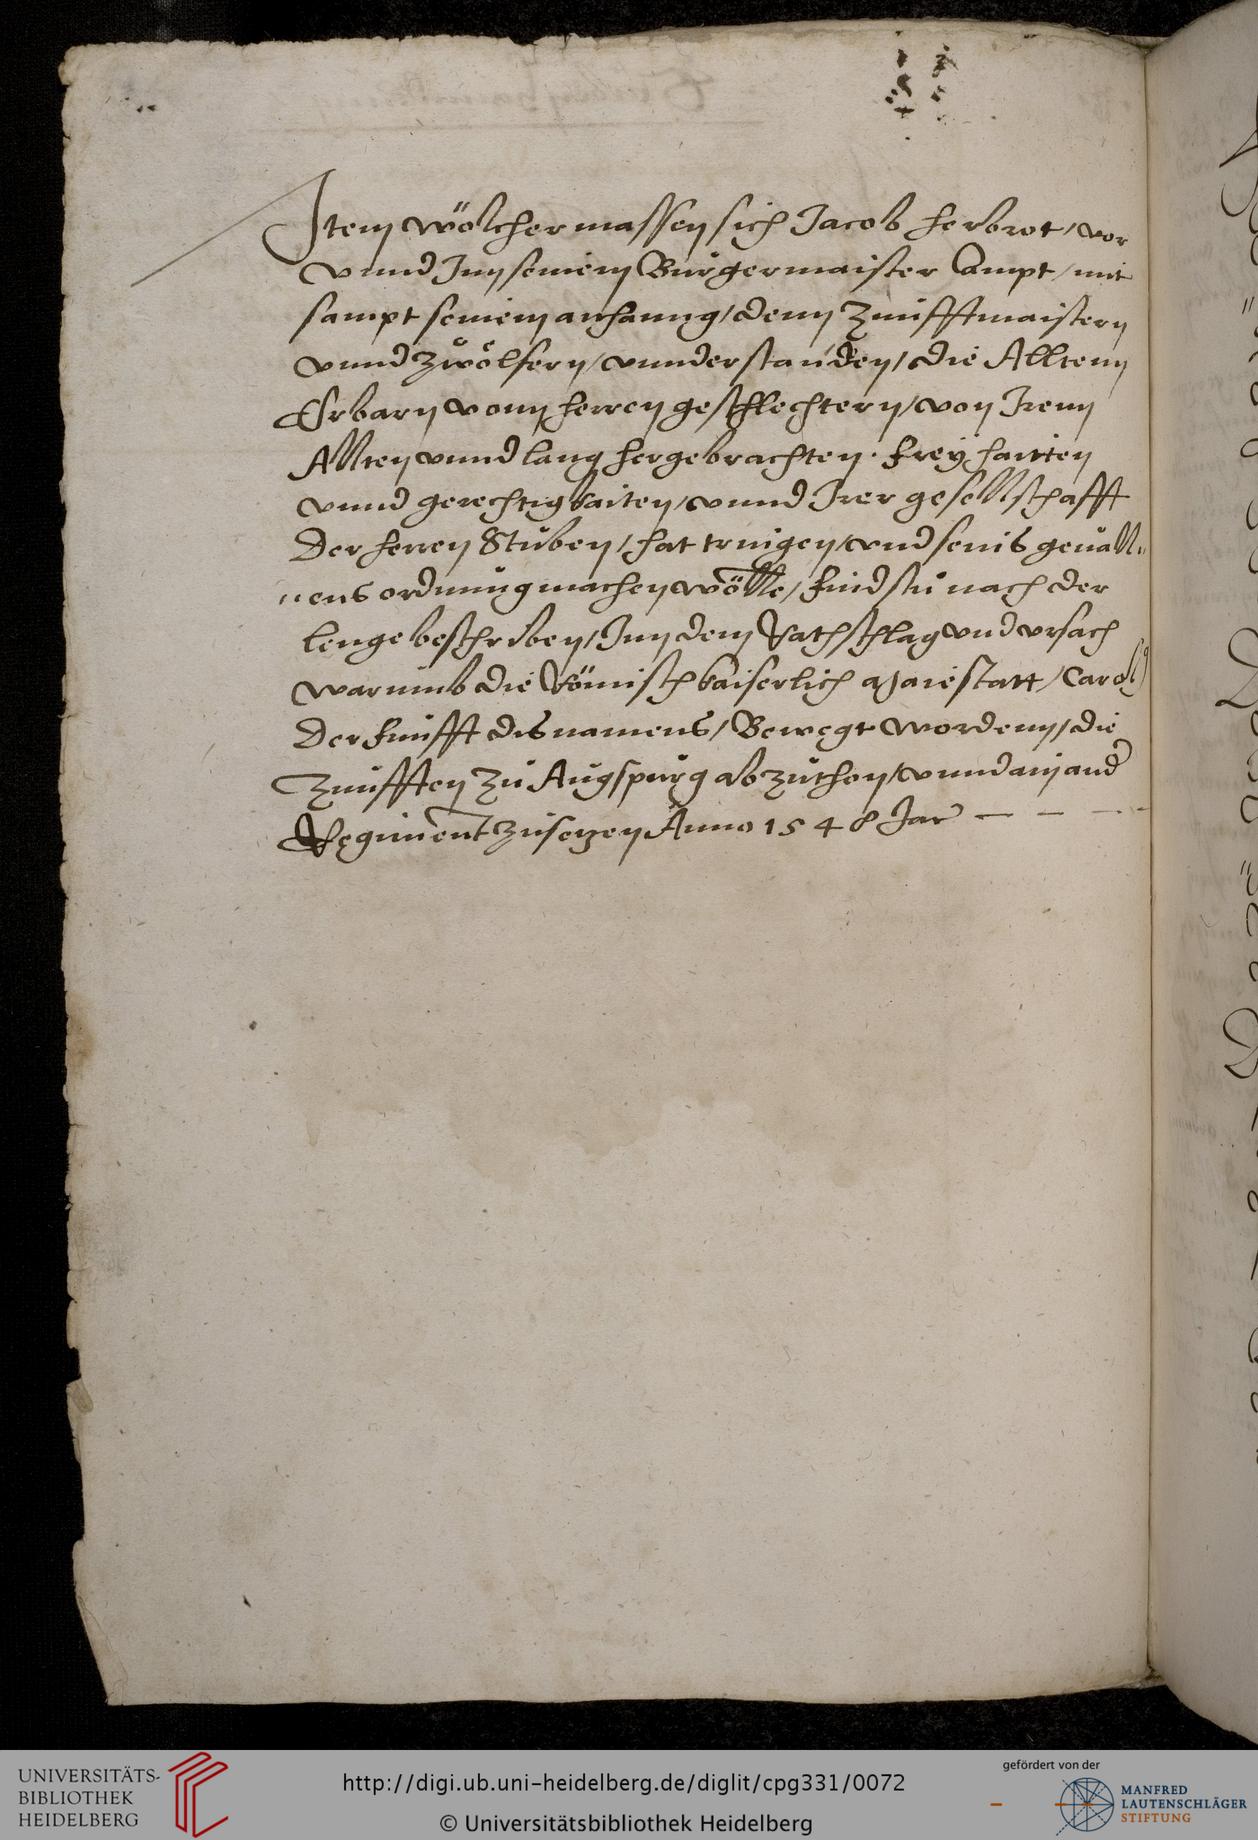 Item wölcher massen sich Jacob herbrot / vor
vnnd Inn seinem Burgermaister Ampt / mit
sampt seinem anhanng / denn Zunfftmaistern
vnnd Zwölfern / vnnderstanden / die Alltenn
Erbarn vonn herren geschlechtern / von Irenn
Allten vnnd lang hergebrachten. freÿhaitten
vnnd gerechtigkaiten / vnnd Irer gesellschafft
Der herren Stuben / hat tringen / vnd seins geuall„
„ens ordnung machen wölle / findstu nach der
lenge beschriben / Inn dem Rathschlag vnd vrsach
warumb die Römisch kaiserlich Maiestatt / Caroly
Der funfft dis namens / Bewegt wordenn / die
Zunfften zu Augspurg abzuthon / vnnd ain and
Regiment zusetzen Anno 1548 Jar – – – –
UNIVERSITÄTS-
BIBLIOTHEK
HEIDELBERG
http://digi.ub.uni-heidelberg.de/diglit/cpg331/0072
© Universitätsbibliothek Heidelberg
gefördert von der
MANFRED
LAUTENSCHLÄGER
STIFTUNG